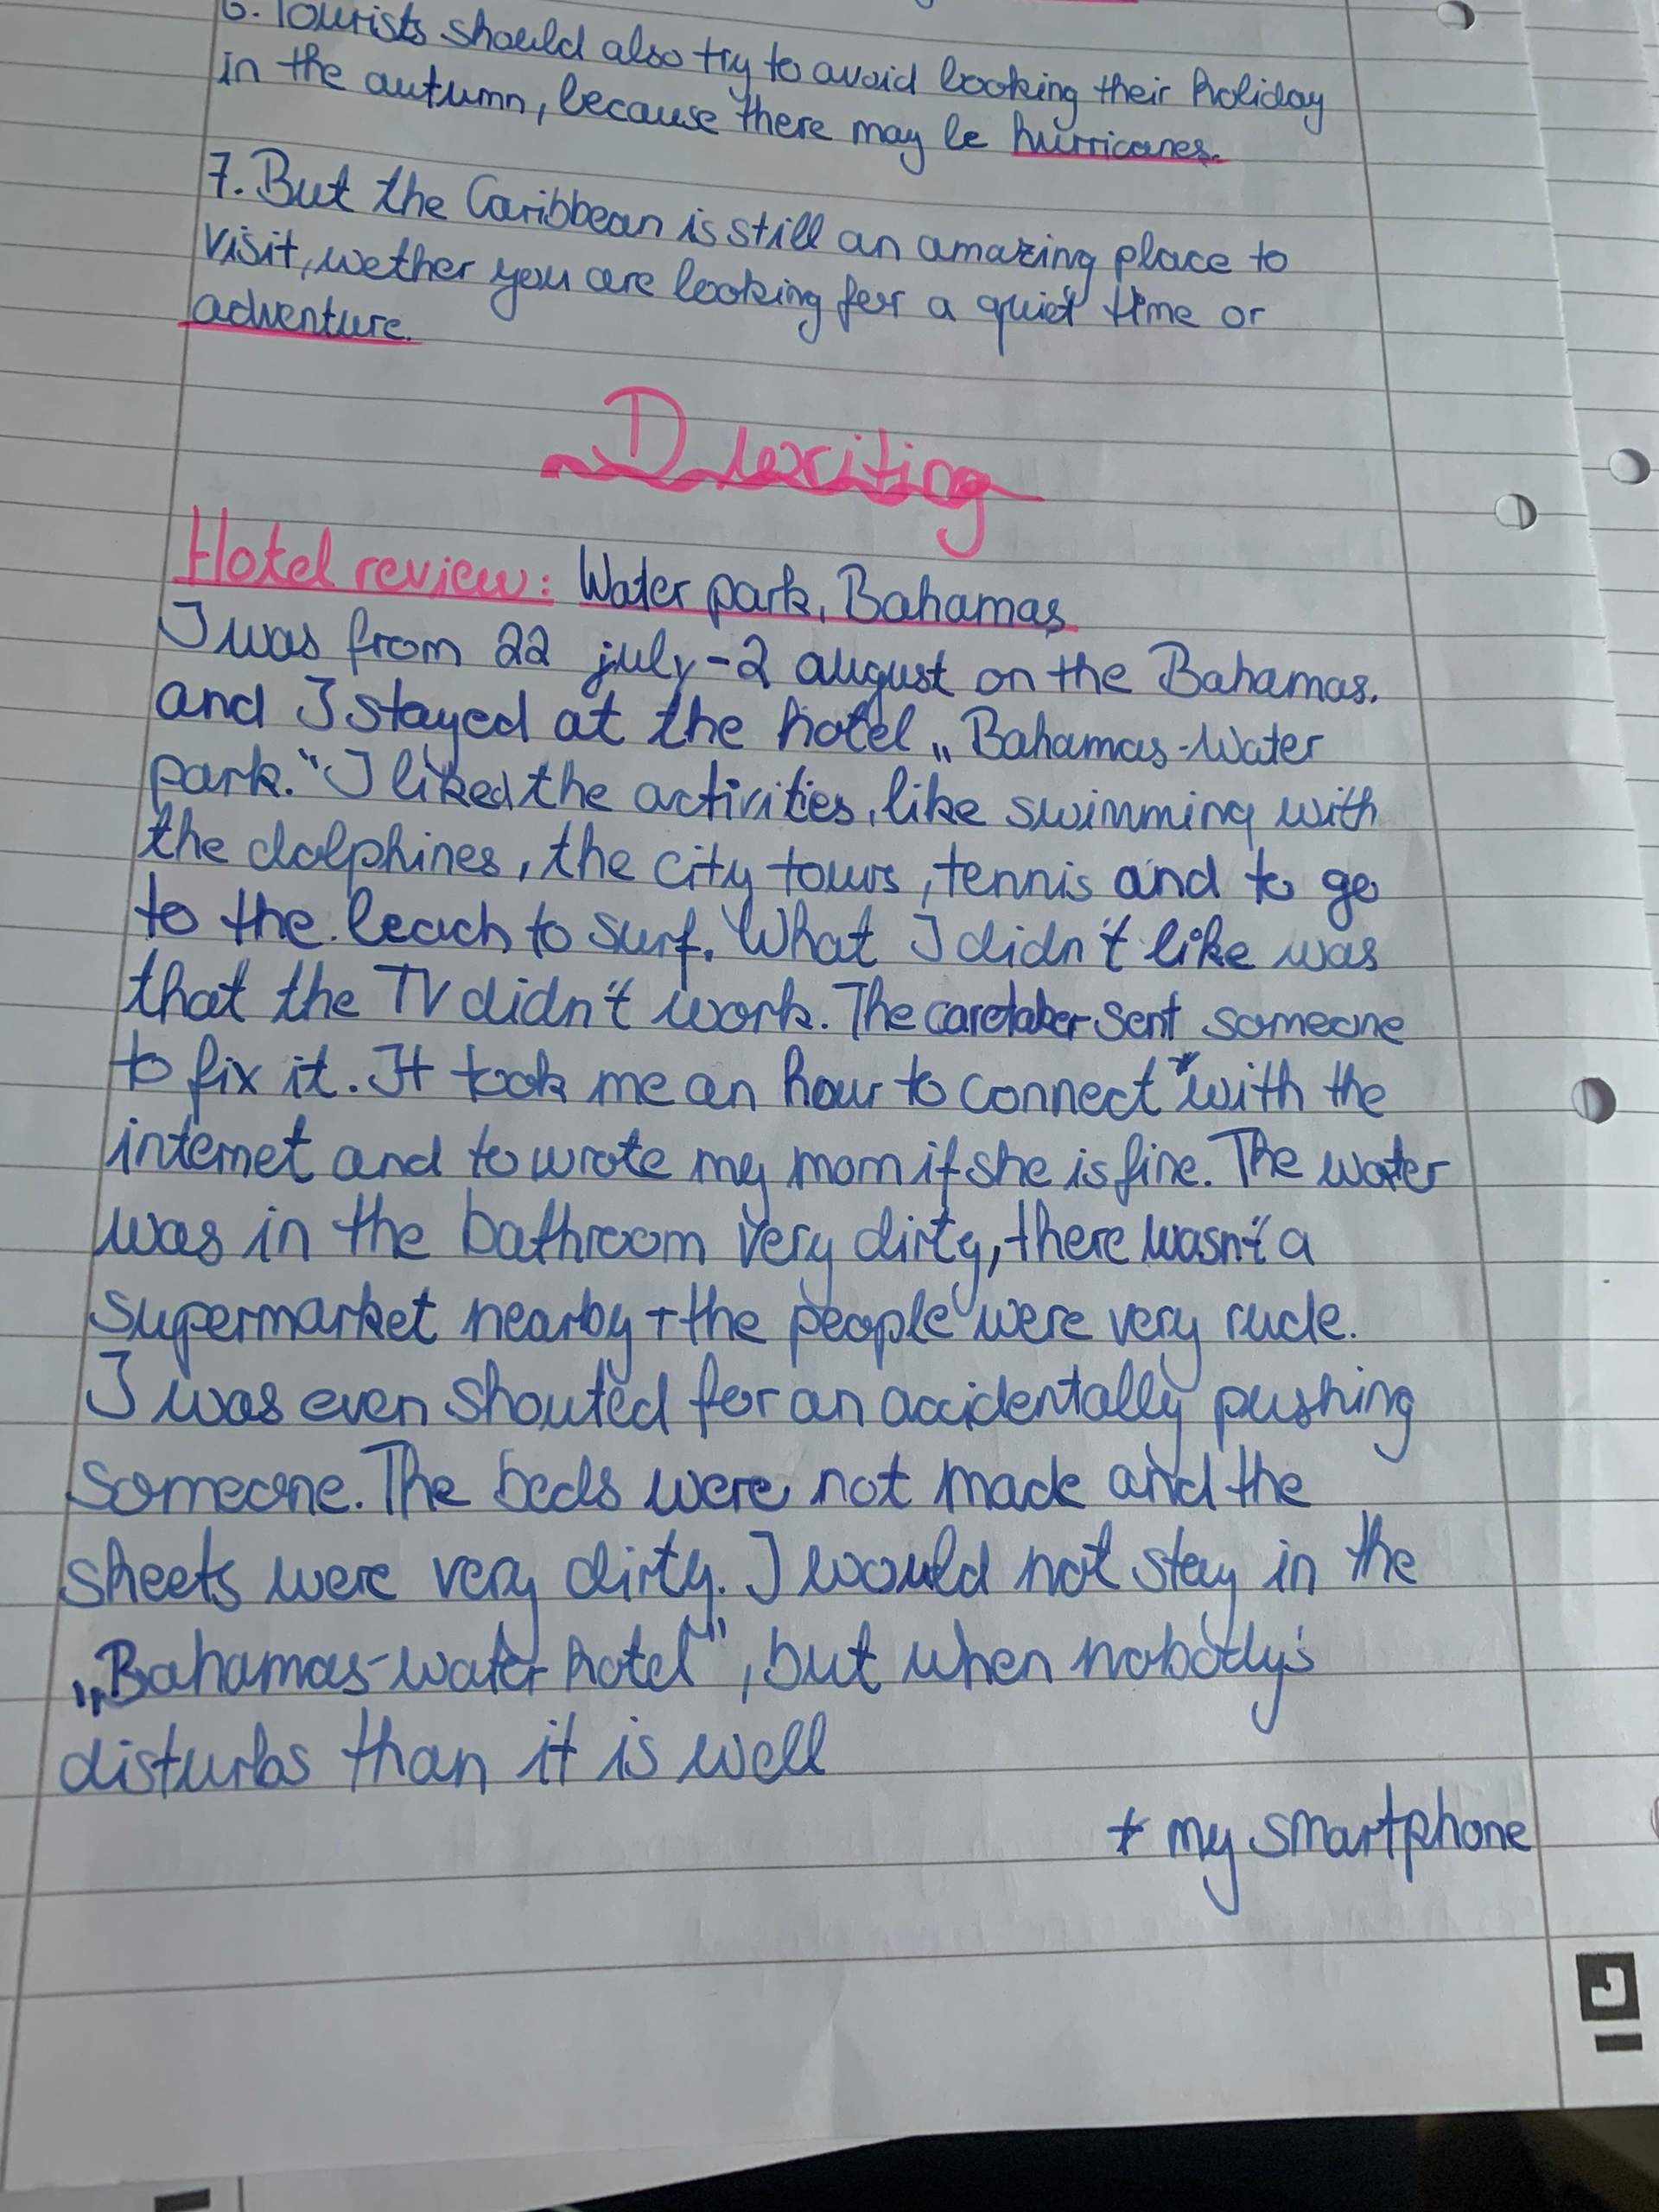 6. Tourists should also try to avoid booking their holiday
in the autumn, because there may be hurricanes.
7. But the Caribbean is still an amazing place to
visit, wether you are looking for a quiet time or
adventure.
D Writing
Hotel review: Water park, Bahamas
I was from 22 july - 2 august on the Bahamas.
and I stayed at the hotel „Bahamas-Water
park.“ I liked the activities, like swimming with
the dolphines, the city tours, tennis and to go
to the beach to surf. What I didn't like was
that the TV didn't work. The caretaker sent someone
to fix it. It took me an hour to connect * with the
internet and to wrote my mom if she is fine. The water
was in the bathroom very dirty, there wasn't a
supermarket nearby + the people were very rude.
I was even shouted for an accidentally pushing
someone. The beds were not made and the
sheets were very dirty. I would not stay in the
„Bahamas-water hotel", but when nobody's
disturbs than it is well
* my smartphone